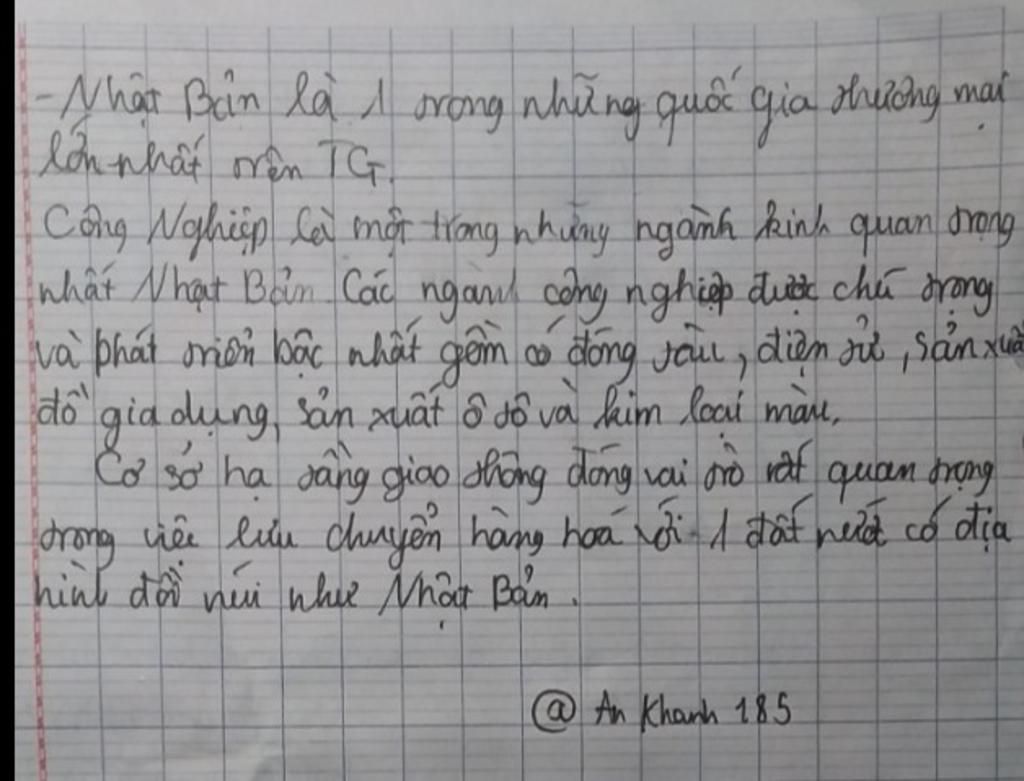 - Nhật Bản là 1 trong những quốc gia thương mại
lớn nhất trên TG.
Công Nghiệp là một trong những ngành kinh quan trọng
nhất Nhật Bản. Các ngành công nghiệp được chú trọng
và phát triển bậc nhất gồm có đóng tàu, điện tử, sản xuấ
đồ gia dụng, sản xuất ô tô và kim loại màu.
Cơ sở hạ tầng giao thông đóng vai trò rất quan trọng
trong việc lưu chuyển hàng hoá với 1 đất nước có địa
hình đồi núi như Nhật Bản.
@ An Khanh 185